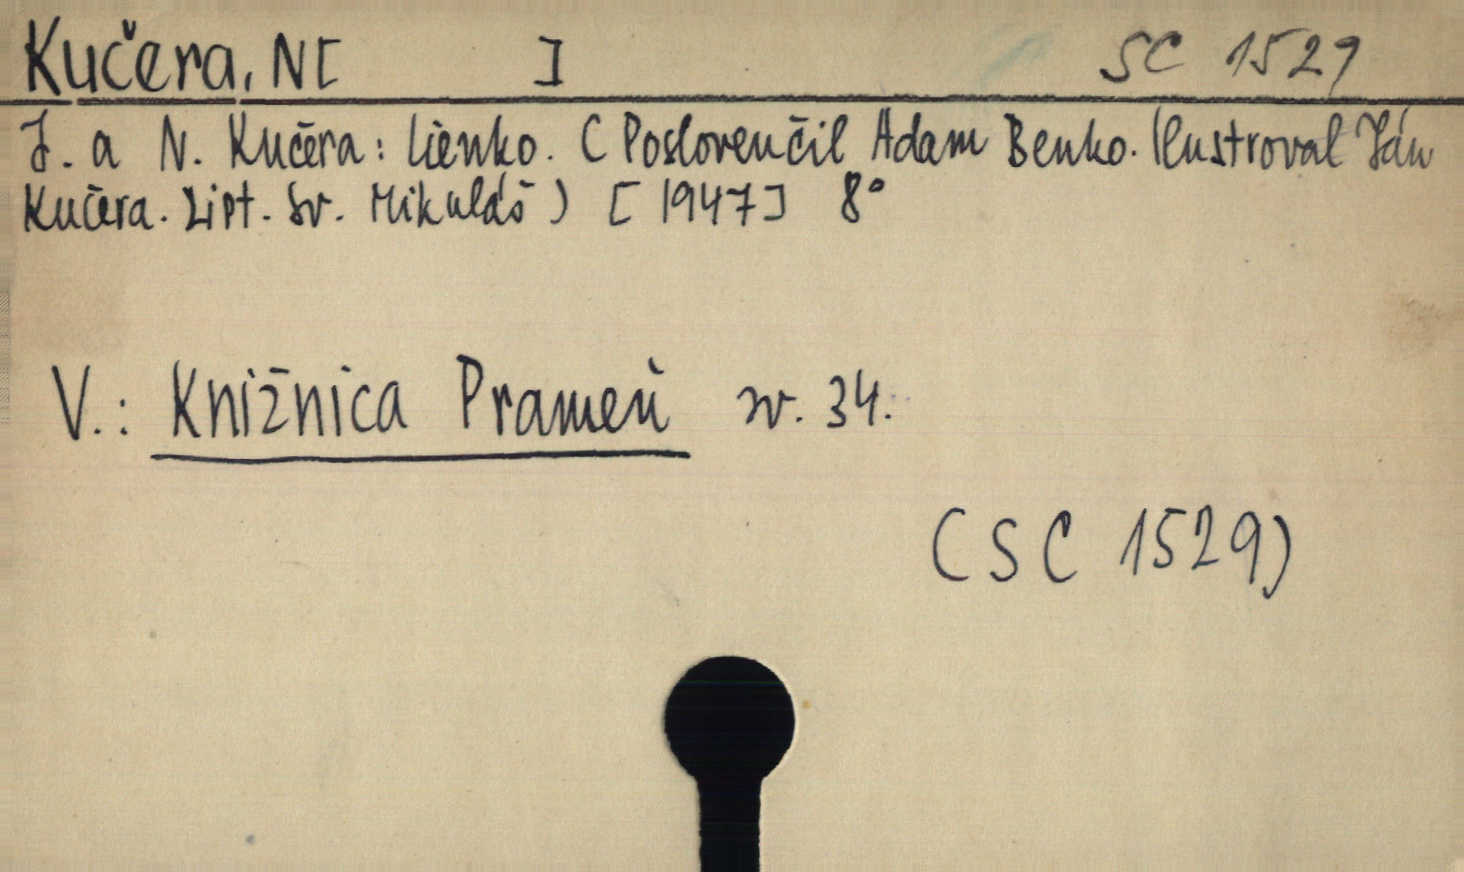 Kučera, N[ ] SC 1529
J. a N. Kučera: Lienko. (Poslovenčil Adam Benko. Ilustroval Ján
Kučera. Lipt. Sv. Mikuláš) [1947] 8°
V.: Knižnica Prameň zv. 34.
(SC 1529)